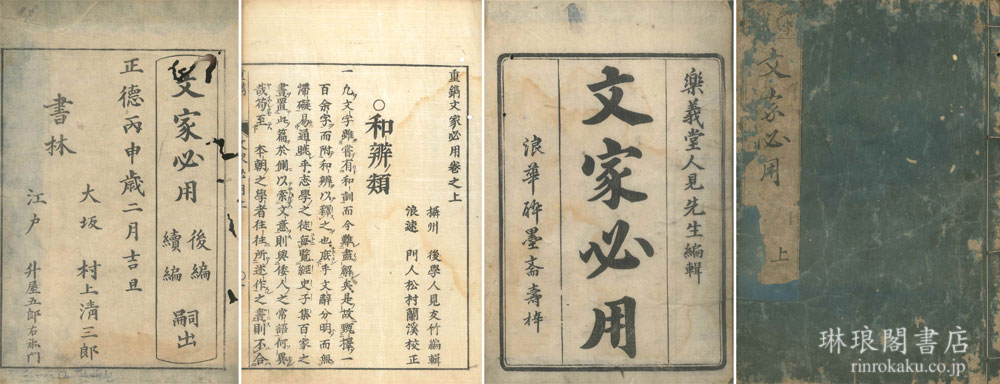 文家必用
上
樂義堂人見先生編輯
文家必用
浪華醉墨齋壽梓
重鐫文家必用卷之上
攝州 後學人見友竹編輯
浪速 門人松村蘭溪校正
○和辨類
一凡文字雖嘗有和訓而今難盡解矣是故甄擇一
百余字而附和辨以釋之也庶乎文辭分明而無
滯礙易通暁乎志學之徒每覧經史子集百家之
書置此篇於側以索文意則與倭人之常語何異
哉 至 本朝之學者往往所述作之書則不合
文家必用
後編
續編
嗣出
正德丙申歳二月吉旦
大坂 村上清三郎
書林
江戸 升屋五郎右衛門
琳琅閣書店
rinrokaku.co.jp